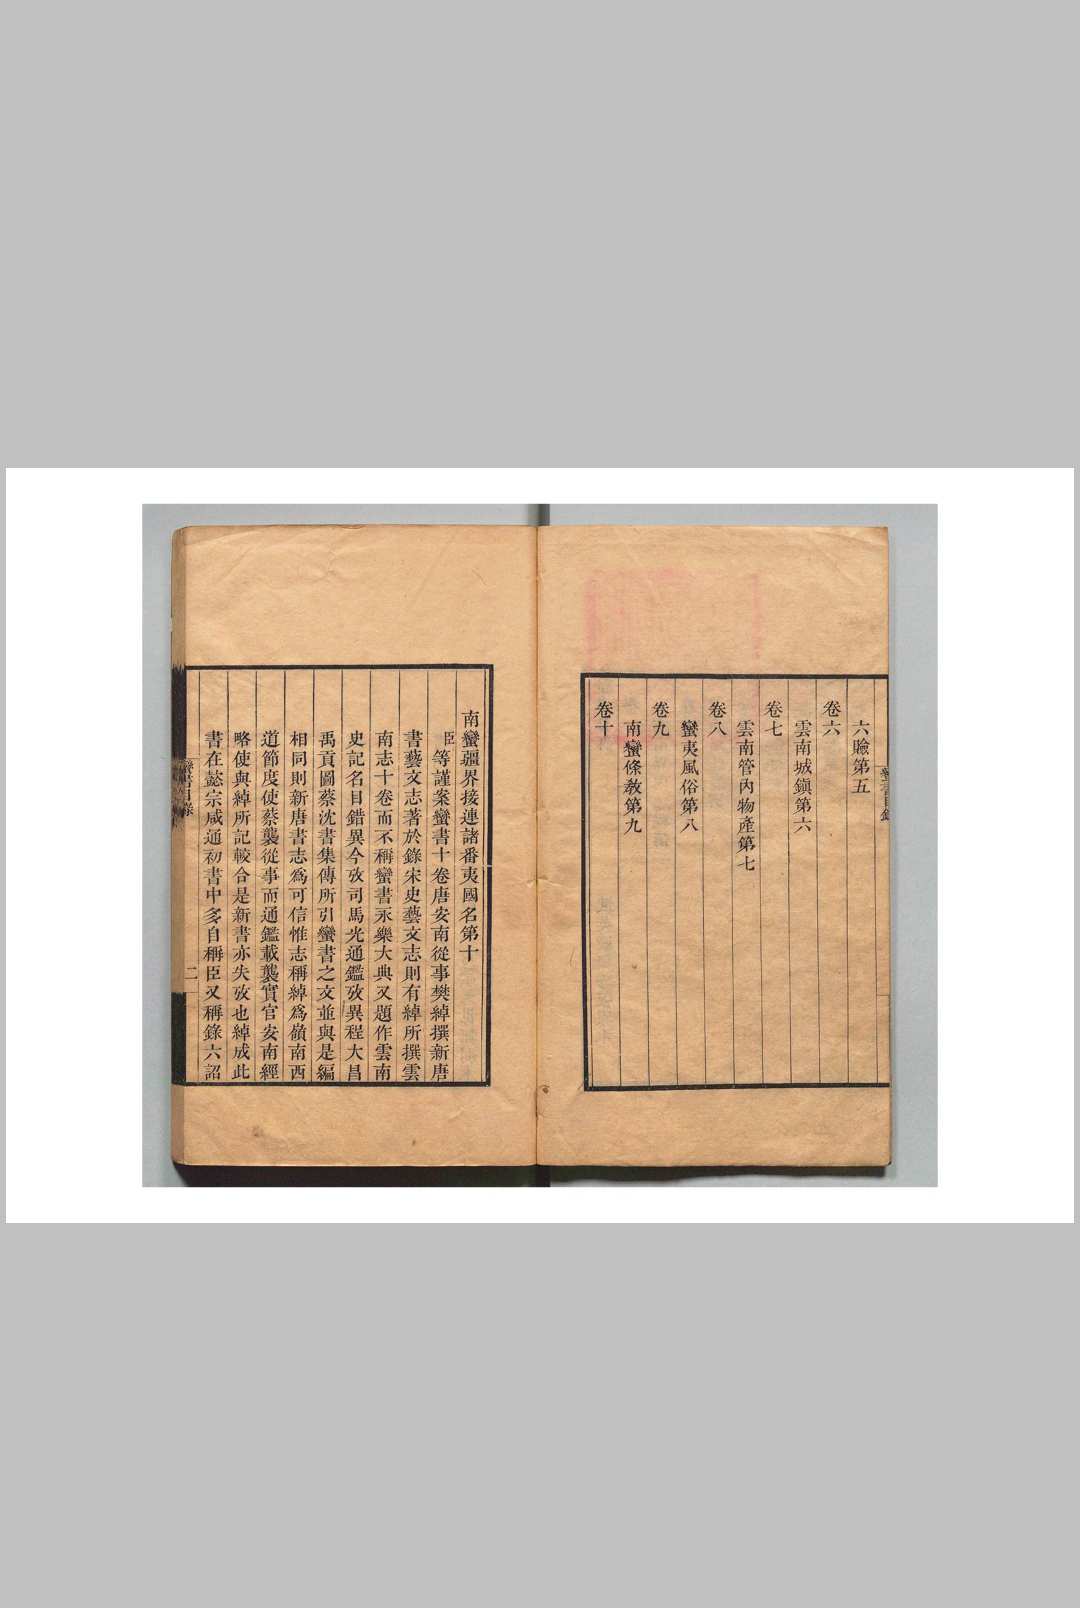 六瞼第五
卷六
雲南城鎭第六
卷七
雲南管內物產第七
卷八
蠻夷風俗第八
卷九
南蠻條敎第九
卷十
南蠻疆界接連諸番夷國名第十
臣等謹案蠻書十卷唐安南從事樊綽撰新唐
書藝文志著於錄宋史藝文志則有綽所撰雲
南志十卷而不稱蠻書永樂大典又題作雲南
史記名目錯異今攷司馬光通鑑攷異程大昌
禹貢圖蔡沈書集傳所引蠻書之文並與是編
相同則新唐書志爲可信惟志稱綽爲嶺南西
道節度使蔡襲從事而通鑑載襲實官安南經
略使與綽所記較合是新書亦失攷也綽成此
書在懿宗咸通初書中多自稱臣又稱錄六詔
二